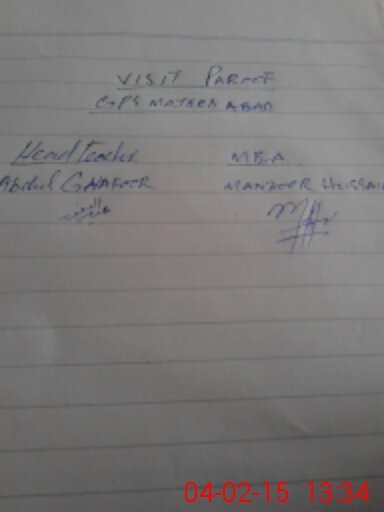 VISIT PAROOF
GPS MOJEED ABAD
Head Teacher MEA
Abdul GHAFOOR MANZOOR HUSSAIN
04-02-15 13:34